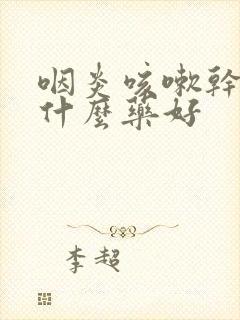 咽炎咳嗽幹
什麼藥好
李超